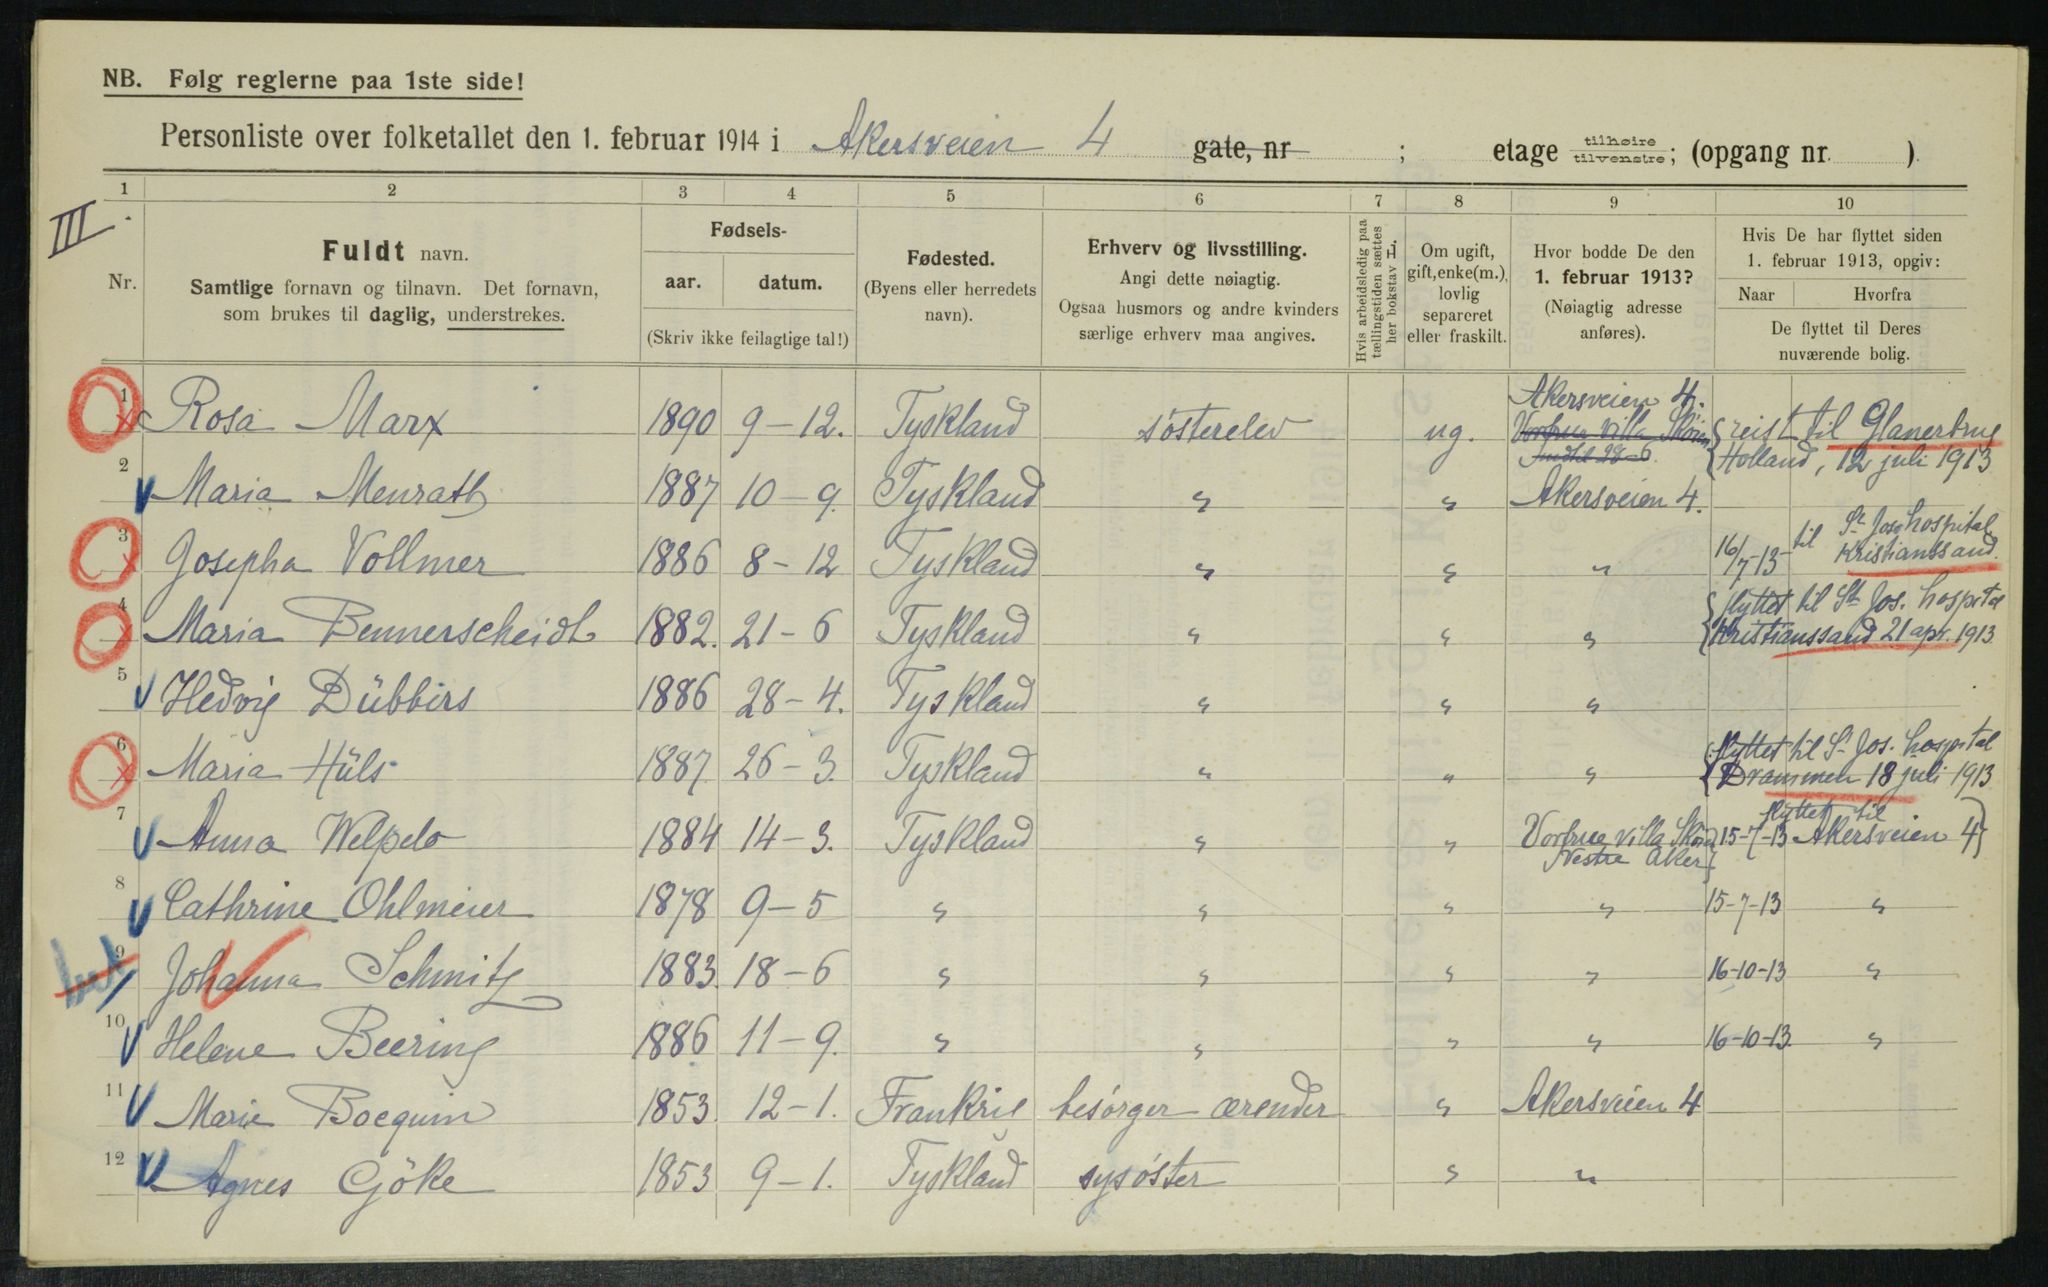 NB. Følg reglerne paa 1ste side!
Personliste over folketallet den 1. februar 1914 i Akersveien 4 gate, nr ; etage tilhøire tilvenstre; (opgang nr. ).
III.
1 2 3 4 5 6 7 8 9 10
Nr.
Fuldt navn.
Samtlige fornavn og tilnavn. Det fornavn,
som brukes til daglig, understrekes.
Fødsels-
aar. datum.
(Skriv ikke feilagtige tal!)
Fødested.
(Byens eller herredets
navn).
Erhverv og livsstilling.
Angi dette nøiagtig.
Ogsaa husmors og andre kvinders
særlige erhverv maa angives.
Hvis arbeidsledig paa
tællingstiden sættes
her bokstav L.
Om ugift,
gift, enke(m.),
lovlig
separeret
eller fraskilt.
Hvor bodde De den
1. februar 1913?
(Nøiagtig adresse
anføres).
Hvis De har flyttet siden
1. februar 1913, opgiv:
Naar Hvorfra
De flyttet til Deres
nuværende bolig.
1 Rosa Marx 1890 9-12. Tyskland søsterelev ug. Akersveien 4. Vorfrue Villa Skøien Indtil 28-6 reist til Glanerbrug
Holland, 12 juli 1913
2 Maria Menrath 1887 10-9. Tyskland " " Akersveien 4.
3 Josepha Vollmer 1886 8-12 Tyskland " " " 16/7-13- til St Jos hospital
Kristianssand.
4 Maria Bennerscheidt 1882. 21-6 Tyskland " " " flyttet til St. Jos. hospital
Kristianssand 21 apr. 1913
5 Hedvig Dübbirs 1886 28-4. Tyskland " " "
6 Maria Hüls 1887. 26-3. Tyskland " " " flyttet til St Jos. hospital
Drammen 18 juli 1913
7 Anna Welpelo 1884 14-3. Tyskland " " Vorfrue Villa Skøien
Vestre Aker 15-7-13 flyttet til
Akersveien 4
8 Cathrine Ohlmeier 1878 9-5 " " " " 15-7-13 "
9 Johanna Schmitz 1883. 18-6 " " " " 16-10-13 "
10 Helene Beering 1886 11-9. " " " " 16-10-13. "
11 Marie Bocquin 1853. 12-1. Frankrig besørger ærender " Akersveien 4
12 Agnes Göke 1853 9-1. Tyskland sysøster " "